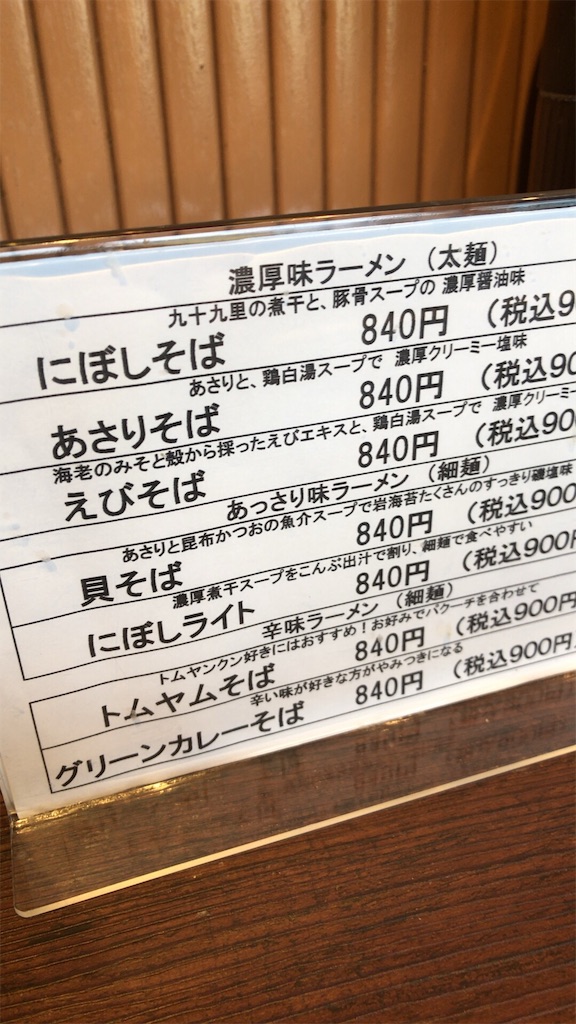 濃厚味ラーメン（太麺）
九十九里の煮干と、豚骨スープの 濃厚醤油味
にぼしそば 840円 （税込9
あさりと、鶏白湯スープで 濃厚クリーミー塩味
あさりそば 840円 （税込90
海老のみそと殻から採ったえびエキスと、鶏白湯スープで 濃厚クリーミー
えびそば 840円 （税込90
あっさり味ラーメン（細麺）
あさりと昆布かつおの魚介スープで岩海苔たくさんのすっきり磯塩味
貝そば 840円 （税込900
濃厚煮干スープをこんぶ出汁で割り、細麺で食べやすい
にぼしライト 840円 （税込900円
辛味ラーメン（細麺）
トムヤンクン好きにはおすすめ！お好みでパクーチを合わせて
トムヤムそば 840円 （税込900円
辛い味が好きな方がやみつきになる
グリーンカレーそば 840円 （税込900円